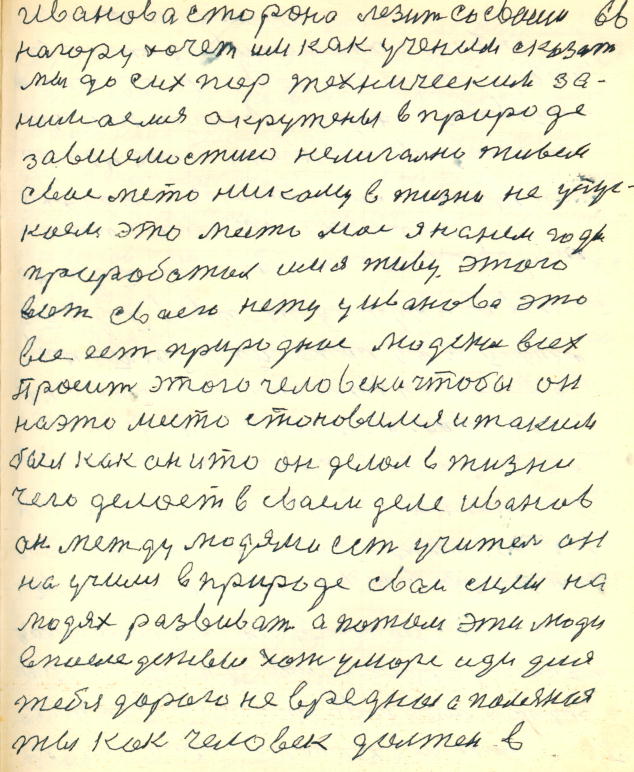 Иванова сторона лезит сосваими 66
нагору хочет им как ученим сказат
мы до сих пор техническим за-
нимаемся окружены в природе
зависмостию нелигално живем
свае место никому в жизни не упус-
каем это место мое я нанем года
приработал имя живу этого
вот своего нету у Иванова это
все ест природнае людена всех
Просит этого человека чтобы он
наэто место становился итаким
был как он ито он делал в жизни
чего делает в сваем деле Иванов
он между людями ест учител он
научился в природе сваи сили на
людях развиват а потом эти люди
хот у море иди для
тебя дорога не вредная
ты как человек должен в